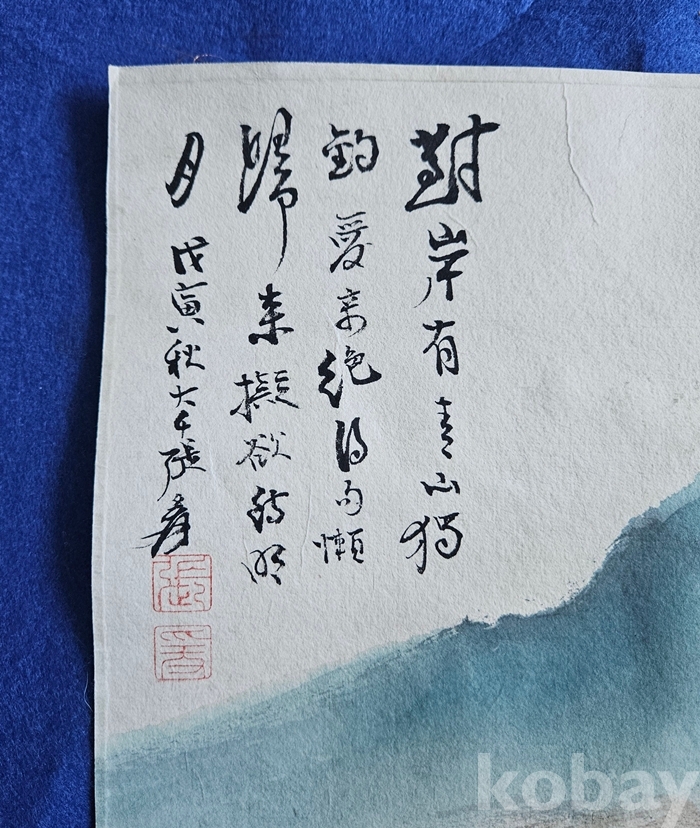 對岸有青山獨
釣愛奇絕得句懶
歸來擬欲待明
月 戊寅秋大千張爰
張
kobay